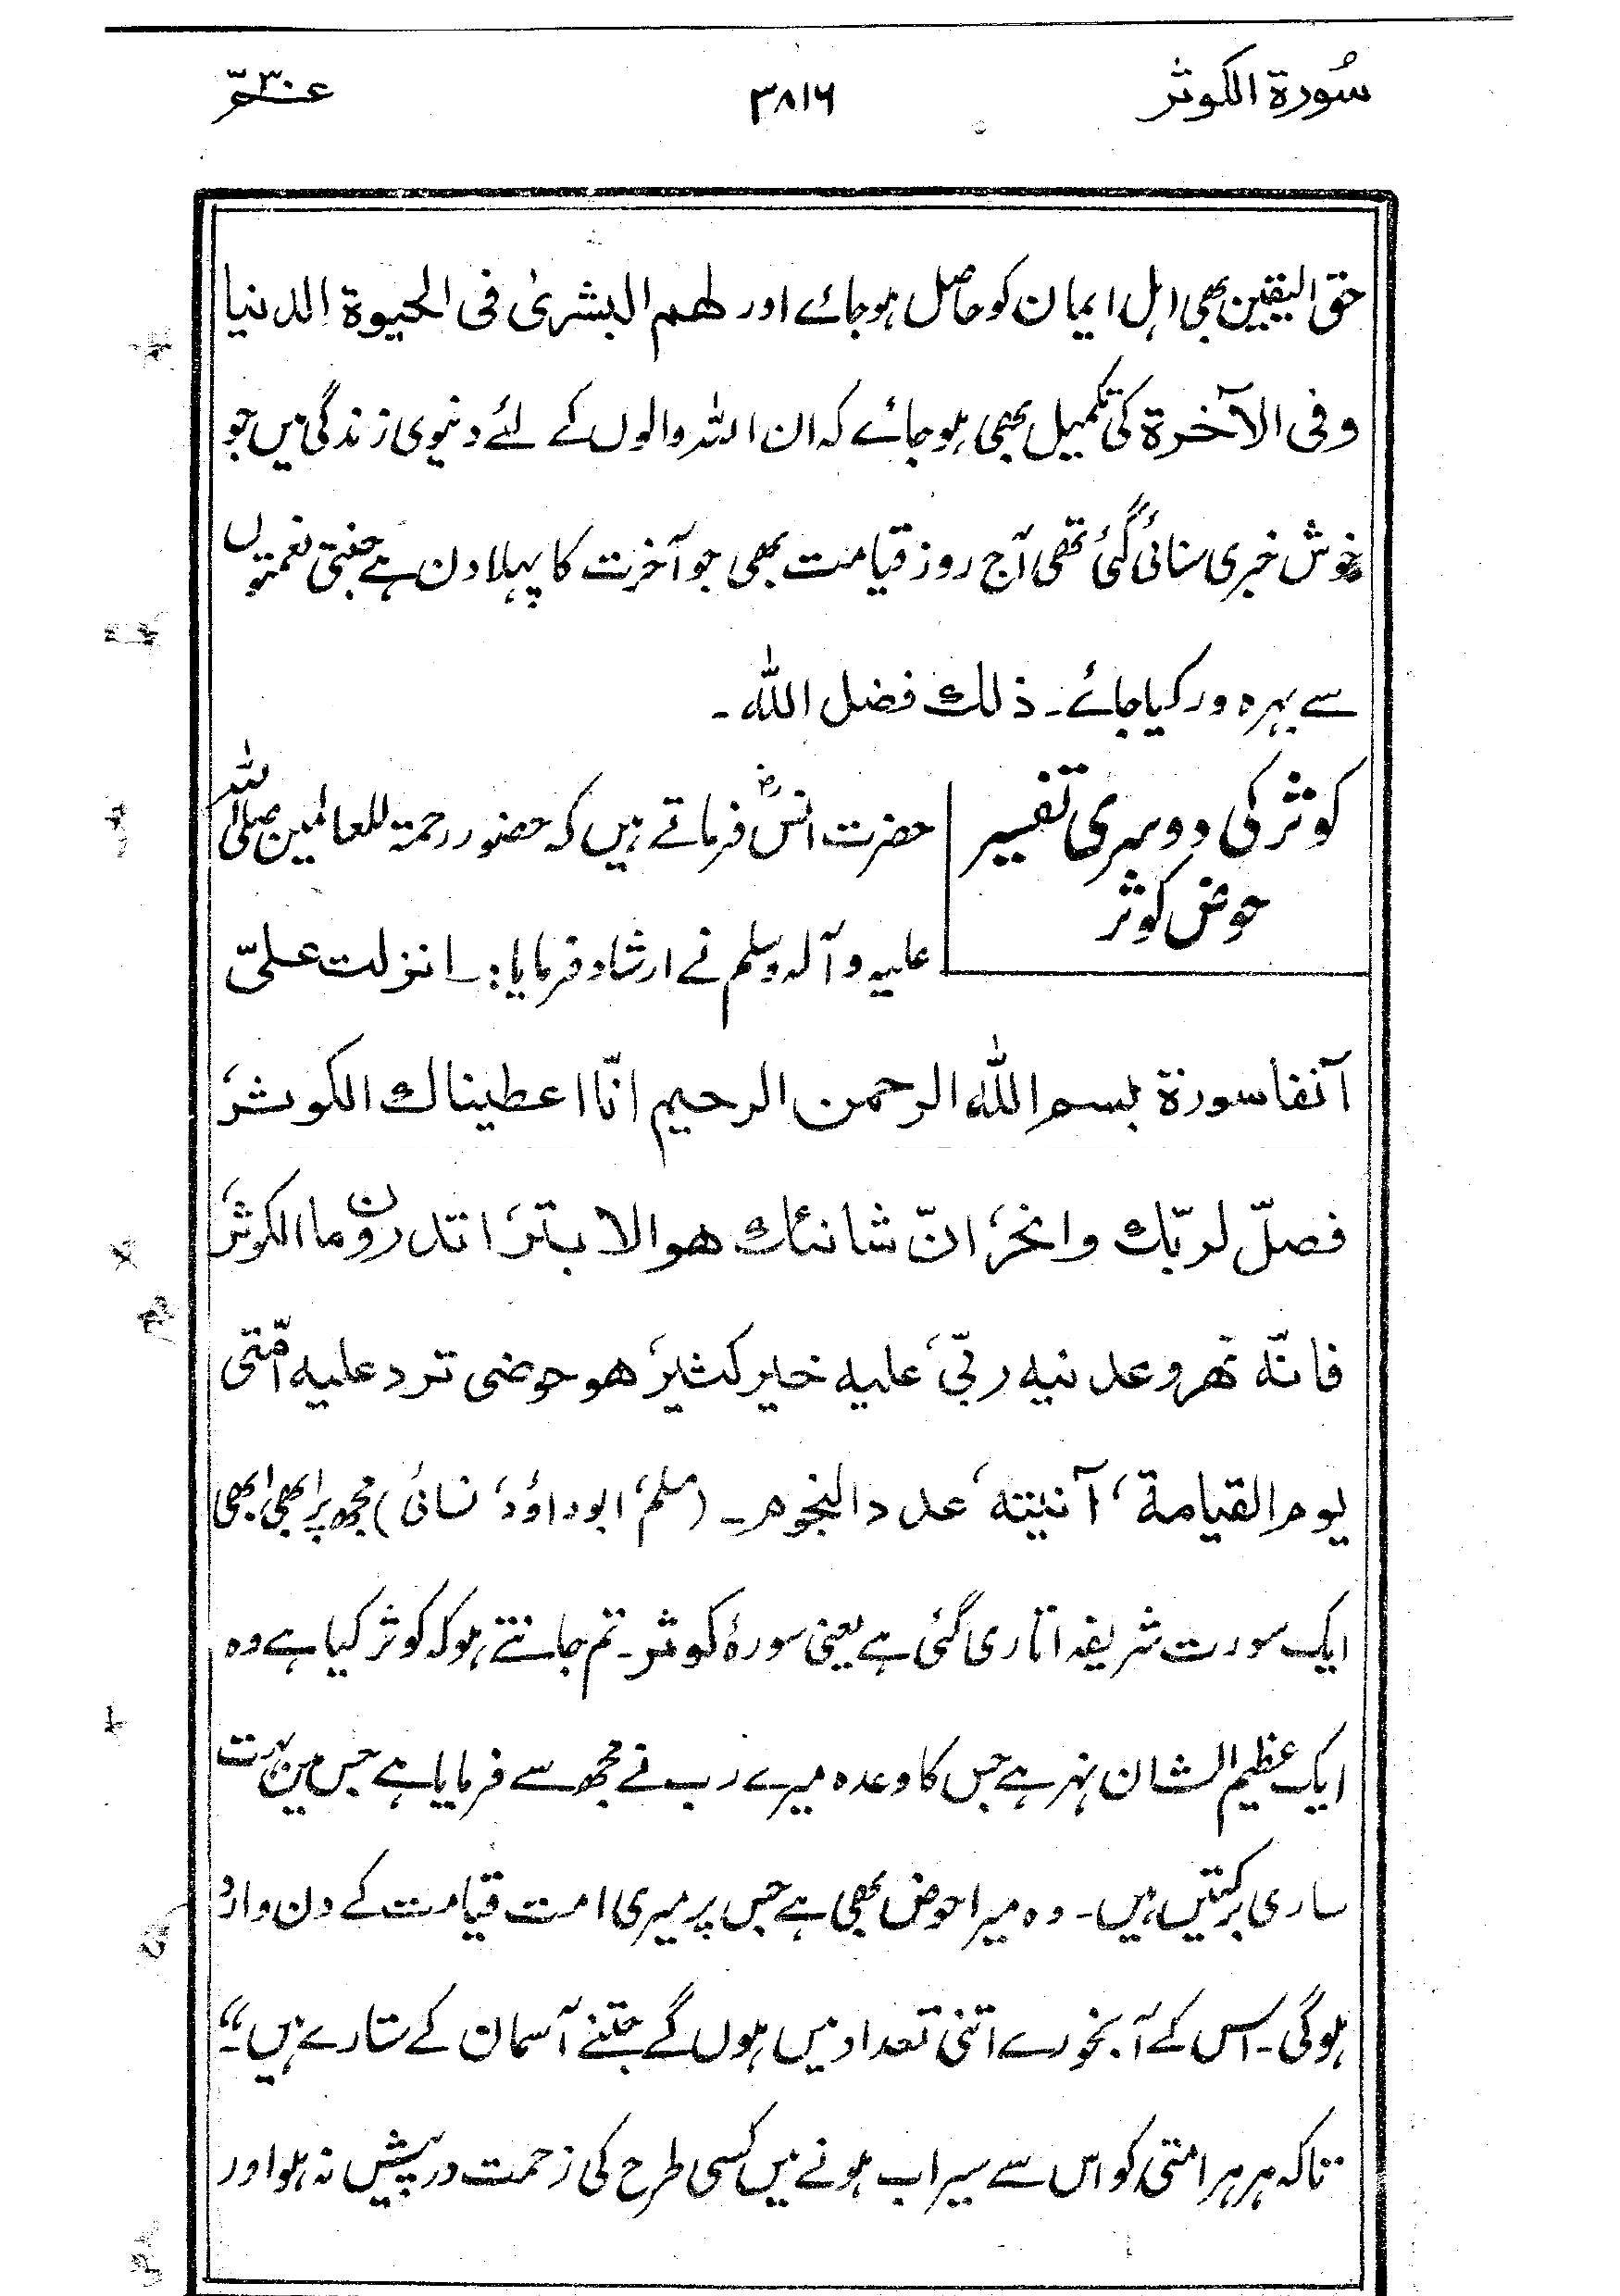 سُورۃ الکوثر
۳۸۱۶
عمّ ۳۰
حق الیقین بھی اہل ایمان کو حاصل ہو جائے اور لھم البشریٰ فی الحیوۃ الدنیا
وفی الآخرۃ کی تکمیل بھی ہو جائے کہ ان اللہ والوں کے لئے دنیوی زندگی میں جو
خوش خبری سنائی گئی تھی آج روز قیامت بھی جو آخرت کا پہلا دن ہے جنتی نعمتوں
سے بہرہ ور کیا جائے۔ ذلك فضل اللہ ۔
کوثر کی دوسری تفسیر
حوض کوثر
حضرت انسؓ فرماتے ہیں کہ حضور رحمۃ للعالمین صلی اللہ
علیہ وآلہ وسلم نے ارشاد فرمایا:۔ انزلت علیّ
آنفا سورۃ بسم اللہ الرحمن الرحیم انّا اعطیناك الکوثر،
فصلّ لربّك وانحر، انّ شانئك ھوالابتر، اتدرون ماالکوثر،
فانّہ نھر وعدنیہ ربّی، علیہ خیر کثیر، ھو حوضی ترد علیہ امّتی
یوم القیامۃ، آنیتہ، عدد النجوم۔ (مسلم، ابوداؤد، نسائی) مجھ پر ابھی ابھی
ایک سورت شریفہ اتاری گئی ہے یعنی سورۂ کوثر۔ تم جانتے ہو کہ کوثر کیا ہے وہ
ایک عظیم الشان نہر ہے جس کا وعدہ میرے رب نے مجھ سے فرمایا ہے جس میں بہت
ساری برکتیں ہیں۔ وہ میرا حوض بھی ہے جس پر میری امت قیامت کے دن وارد
ہوگی۔ اس کے آبخورے اتنی تعداد میں ہوں گے جتنے آسمان کے ستارے ہیں"۔
تاکہ ہر ہر امتی کو اس سے سیراب ہونے میں کسی طرح کی زحمت درپیش نہ ہو اور